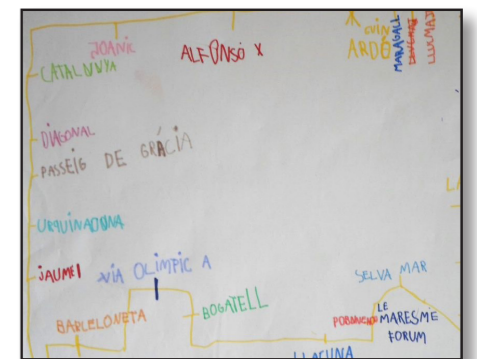 JOANIC
ALFONSO X
GUIN
ARDÓ
MARAGALL
LLUCMAJ
CATALNVYA
DIAGONAL
PASSEIG DE GRÁCIA
URQUINAONA
JAUME I
VIA OLIMPIC A
SELVA MAR
BARCELONETA
BOGATELL
LE
MARESME
FORUM
LLACUNA